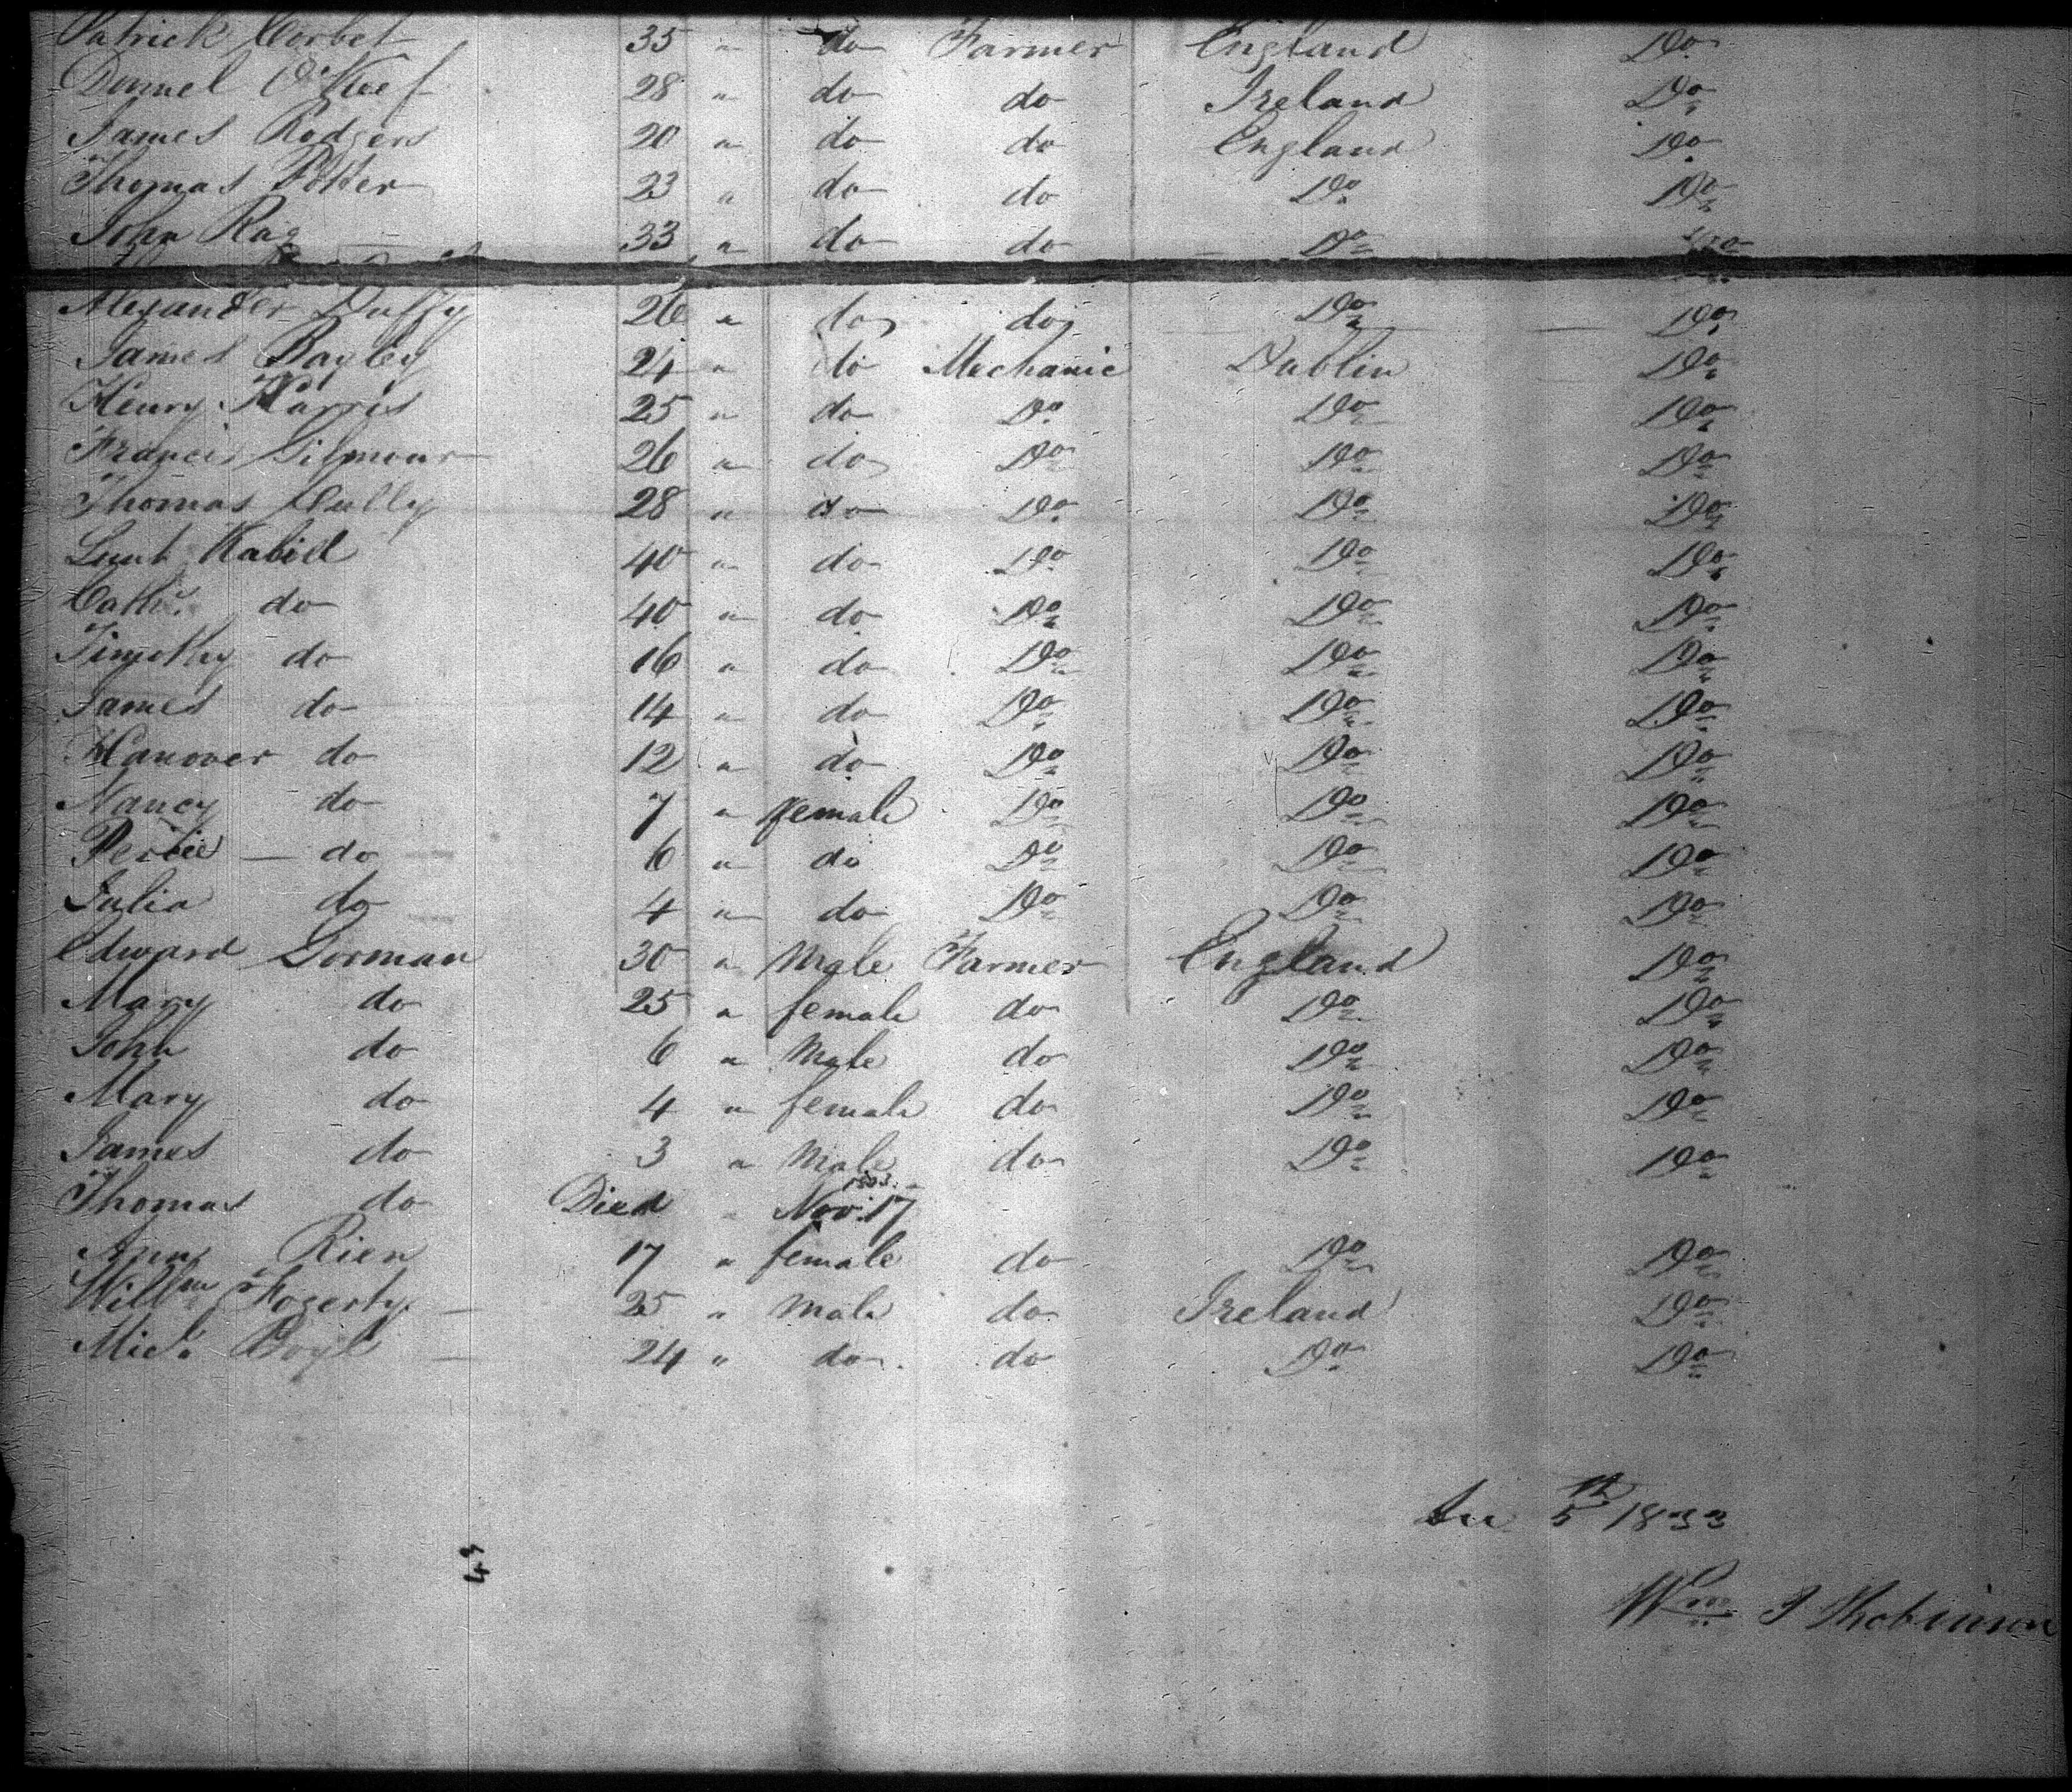 Patrick Corbet 35 " do Farmer England Do
Daniel O'Keef 28 " do do Ireland Do
James Rodgers 20 " do do England Do
Thomas Potter 23 " do do Do Do
John Ray 33 " do do Do Do
Alexander Duffy 26 " do do Do Do
James Bayley 24 " do Mechanic Dublin Do
Henry Harris 25 " do Do Do Do
Francis Gilmour 26 " do Do Do Do
Thomas Cully 28 " do Do Do Do
40 " do Do Do Do
Cathe. do 40 " do Do Do Do
Timothy do 16 " do Do Do Do
James do 14 " do Do Do Do
Hanover do 12 " do Do Do Do
Nancy do 7 " female Do Do Do
do 6 " do Do Do Do
Julia do 4 " do Do Do Do
Edward Gorman 30 " Male Farmer England Do
Mary do 25 " female do Do Do
John do 6 " Male do Do Do
Mary do 4 " female do Do Do
James do 3 " Male do Do Do
Thomas do Died " Nov. 17
Ann Rien 17 " female do Do Do
Willm Fogerty 25 " Male do Ireland Do
Mich. Boyl 24 " do do Do Do
5th 1833
Wm